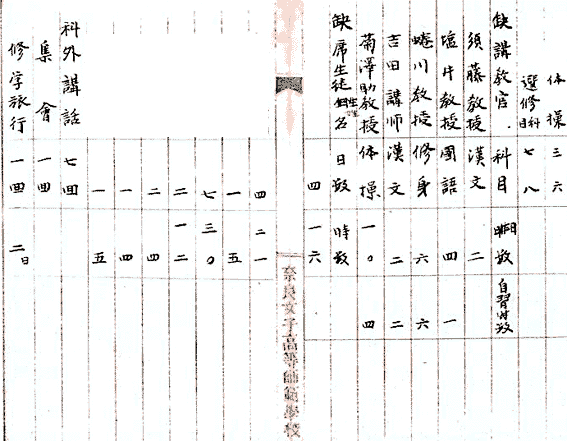 体操 三六
選修科目 七八
缺講教官 科目 時数 自習時数
須藤教授 漢文 二
塩井教授 國語 四 一
蜷川教授 修身 六 六
吉田講師 漢文 二 二
菊澤助教授 体操 一〇 四
缺席生徒 日数 時数
四 一六
奈良女子高等師範學校
四 二一
一 五
七 三〇
二 一二
二 四
一 四
一 五
科外講話 七回
集會 一回
修学旅行 一回 二日